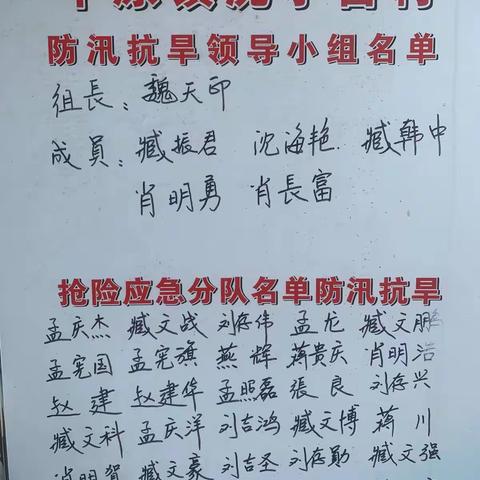 防汛抗旱领导小组名单
组長：魏天印
成員：臧振君 沈海艳 臧韩中
肖明勇 肖長富
抢险应急分队名单防汛抗旱
孟庆杰 臧文战 刘存伟 孟龙 臧文鹏
孟宪国 孟宪旗 燕辉 蒋贵庆 肖明浩
赵建 赵建华 孟照磊 張良 刘存兴
臧文科 孟庆洋 刘吉鸿 臧文博 蒋川
肖明贺 臧文豪 刘吉圣 刘存勋 臧文强